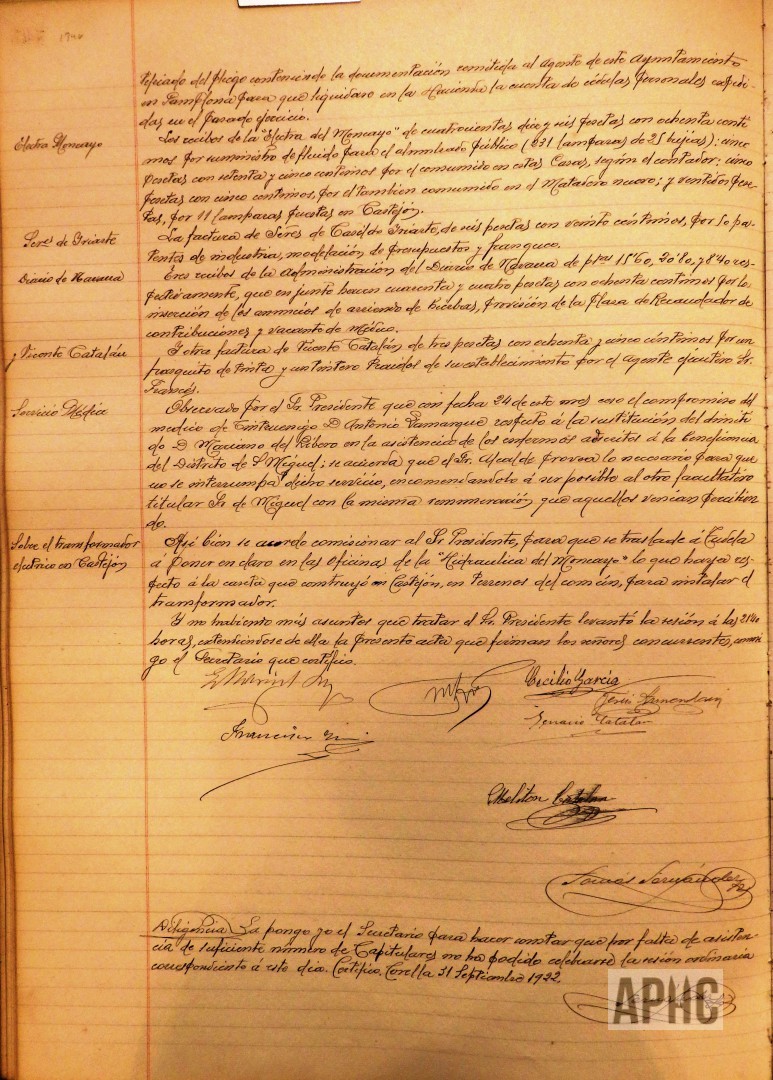 tificado del pliego conteniendo la documentación remitida al agente de este Ayuntamiento
en Pamplona para que liquidase en la Hacienda la cuenta de cédulas personales expedi-
das en el pasado ejercicio.
Electra Moncayo
Los recibos de la "Electra del Moncayo" de cuatrocientas diez y seis pesetas con ochenta cénti
mos por suministro de fluido para el alumbrado público (231 lamparas de 25 bujias); cinco
pesetas con setenta y cinco centimos por el consumido en estas Casas, según el contador; cinco
pesetas con cinco centimos, por el tambien consumido en el Matadero nuevo; y veintidos pese-
tas, por 11 lamparas puestas en Castejón.
Sers. de Iriarte
La factura de Señes de Casildo Iriarte, de seis pesetas con veinte céntimos, por 50 pa-
tentes de industria, modelación de presupuestos y franqueo.
Diario de Navarra
Tres recibos de la Administración del Diario de Navarra de ptas 15'60, 20'80, y 8'40 res-
pectivamente, que en junto hacen cuarenta y cuatro pesetas con ochenta centimos por la
inserción de los anuncios de arriendo de hierbas, provisión de la plaza de Recaudador de
contribuciones y vacante de médico.
y Vicente Catalán
Y otra factura de Vicente Catalán de tres pesetas con ochenta y cinco céntimos por un
frasquito de tinta y un tintero traidos de su establecimiento por el agente ejecutivo Sr.
Francés.
Servicio Médico
Observado por el Sr. Presidente que con fecha 24 de este mes cesó el compromiso del
medico de Cintruenigo D. Antonio Lamarque respecto á la sustitución del dimiti
do D. Mariano del Ribero en la asistencia de los enfermos adscritos á la beneficencia
del Distrito de S. Miguel; se acuerda que el Sr. Alcalde provea lo necesario para que
no se interrumpa dicho servicio, encomendandolo á ser posible al otro facultativo
titular Sr. de Miguel con la misma remuneración que aquellos venían percibien
do.
Sobre el transformador
electrico en Castejón
Asi bien se acordo comisionar al Sr. Presidente, para que se traslade á Tudela
á poner en claro en las oficinas de la "Hidraulica del Moncayo" lo que haya res-
pecto á la caseta que construyó en Castejón, en terrenos del común, para instalar el
transformador.
Y no habiendo más asuntos que tratar el Sr. Presidente levantó la sesión á las 21'40
horas, extendiéndose de ella la presente acta que firman los señores concurrentes, conmi-
go el Secretario que certifico.
Cecilio Garcia
Jesús
Genaro Catalan
Francisco
Meliton Catalan
Diligencia. La pongo yo el Secretario para hacer constar que por falta de asisten-
cia de suficiente número de Capitulares no ha podido celebrarse la sesión ordinaria
correspondiente á este dia. Certifico. Corella 31 Septiembre 1922.
APHC